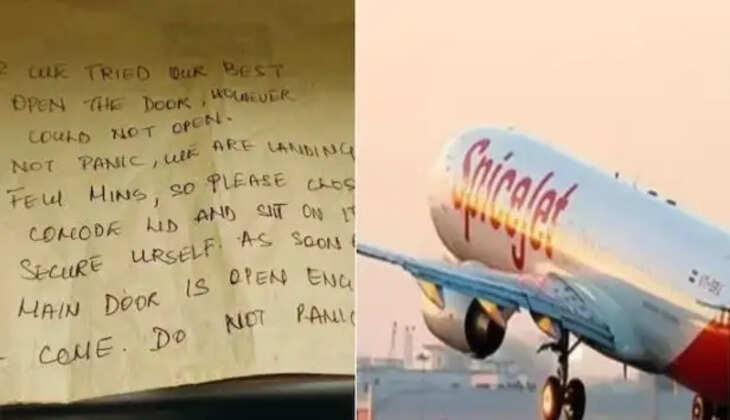 ? WE TRIED OUR BEST
OPEN THE DOOR, HOWEVER
COULD NOT OPEN.
NOT PANIC, WE ARE LANDING
FEW MINS, SO PLEASE CLOS
COMODE LID AND SIT ON IT
SECURE URSELF. AS SOON
MAIN DOOR IS OPEN ENG
COME. DO NOT PANIC
SpiceJet